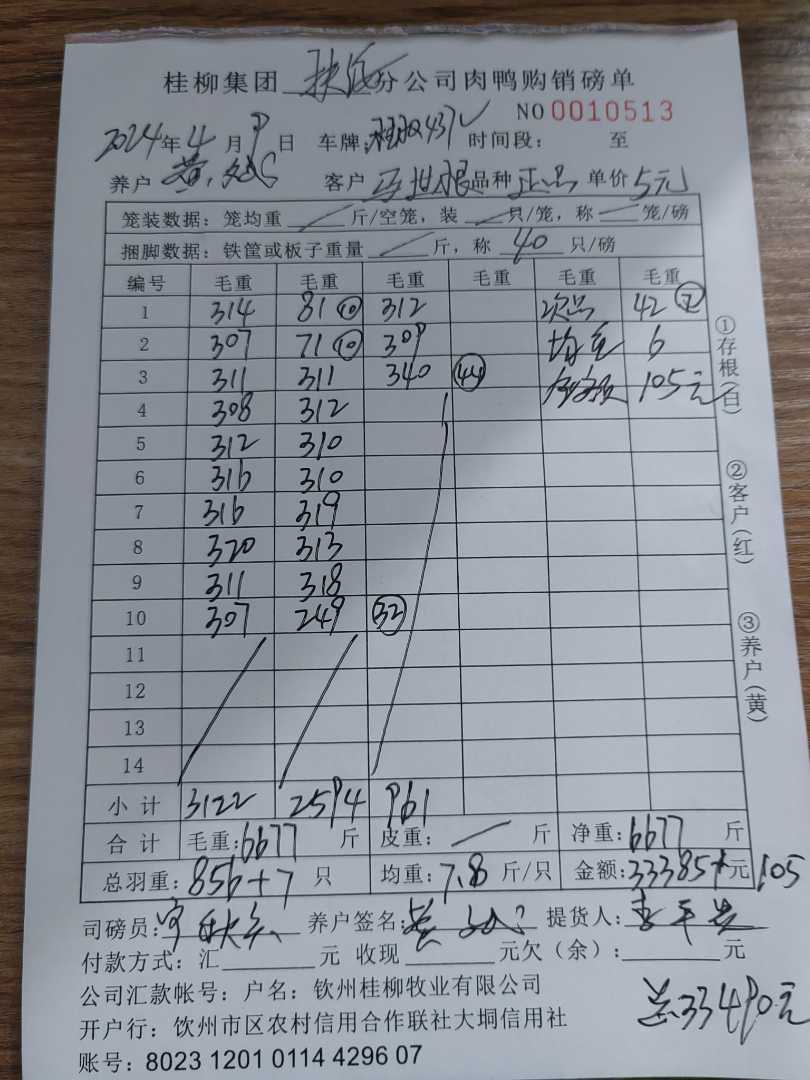 桂柳集团 扶绥 分公司肉鸭购销磅单
NO 0010513
2024年4月9日 车牌: 437 时间段: 至
养户 黄 客户 马世根 品种 正品 单价 5元
笼装数据: 笼均重 / 斤/空笼, 装 / 只/笼, 称 / 笼/磅
捆脚数据: 铁筐或板子重量 / 斤, 称 40 只/磅
编号 毛重 毛重 毛重 毛重 毛重 毛重
1 314 81 ⑩ 312 次品 42 ⑦
2 307 71 ⑩ 309 均重 6
3 311 311 340 ㊹ 金额 105元
4 308 312
5 312 310
6 316 310
7 316 319
8 320 313
9 311 318
10 307 249 ㉜
11
12
13
14
小计 3122 2594 961
合计 毛重: 6677 斤 皮重: / 斤 净重: 6677 斤
总羽重: 856+7 只 均重: 7.8 斤/只 金额: 33385+元 105
司磅员: 养户签名: 提货人: 李
付款方式: 汇 元 收现 元欠(余): 元
公司汇款帐号: 户名: 钦州桂柳牧业有限公司
总33490元
开户行: 钦州市区农村信用合作联社大垌信用社
账号: 8023 1201 0114 4296 07
①存根(白)
②客户(红)
③养户(黄)